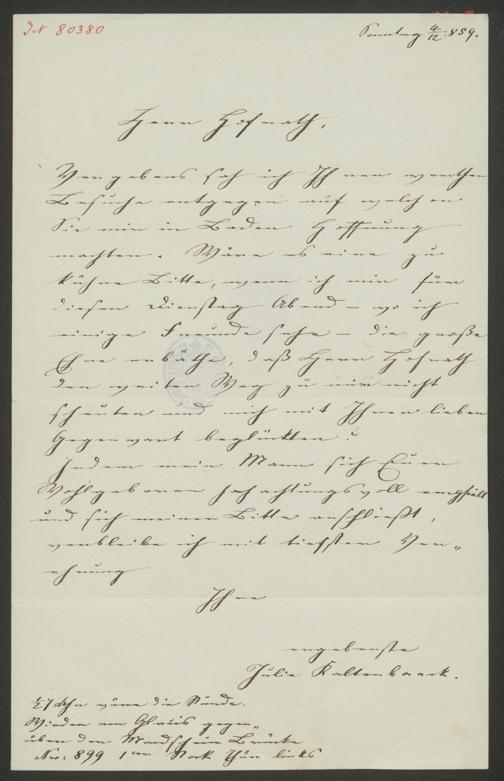 IN 80380
Sonntag 4/12 859.
Herr Hofrath,
Vergebens sah ich Ihren werthen
Besuche entgegen auf welchen
Sie mir in Baden Hoffnung
machten. Wäre es eine zu
kühne Bitte, wenn ich mir für
diesen Dienstag Abend – wo ich
einige Freunde sehe – die große
Ehre erbäthe, daß Herr Hofrath
den weiten Weg zu mir nicht
scheuten und mich mit Ihrer lieben
Gegenwart beglückten?
Indem mein Mann sich Euer
Wohlgeboren hochachtungsvoll empfiehlt
und sich meiner Bitte anschließt,
verbleibe ich mit tiefster Ver„
ehrung
Ihre
ergebenste
Julie Kaltenbaeck.
Uhr wäre die Stunde.
Wieden am Glacis gegen„
über der Mondschein Brücke
Nro: 899 1ter Stock Thür links